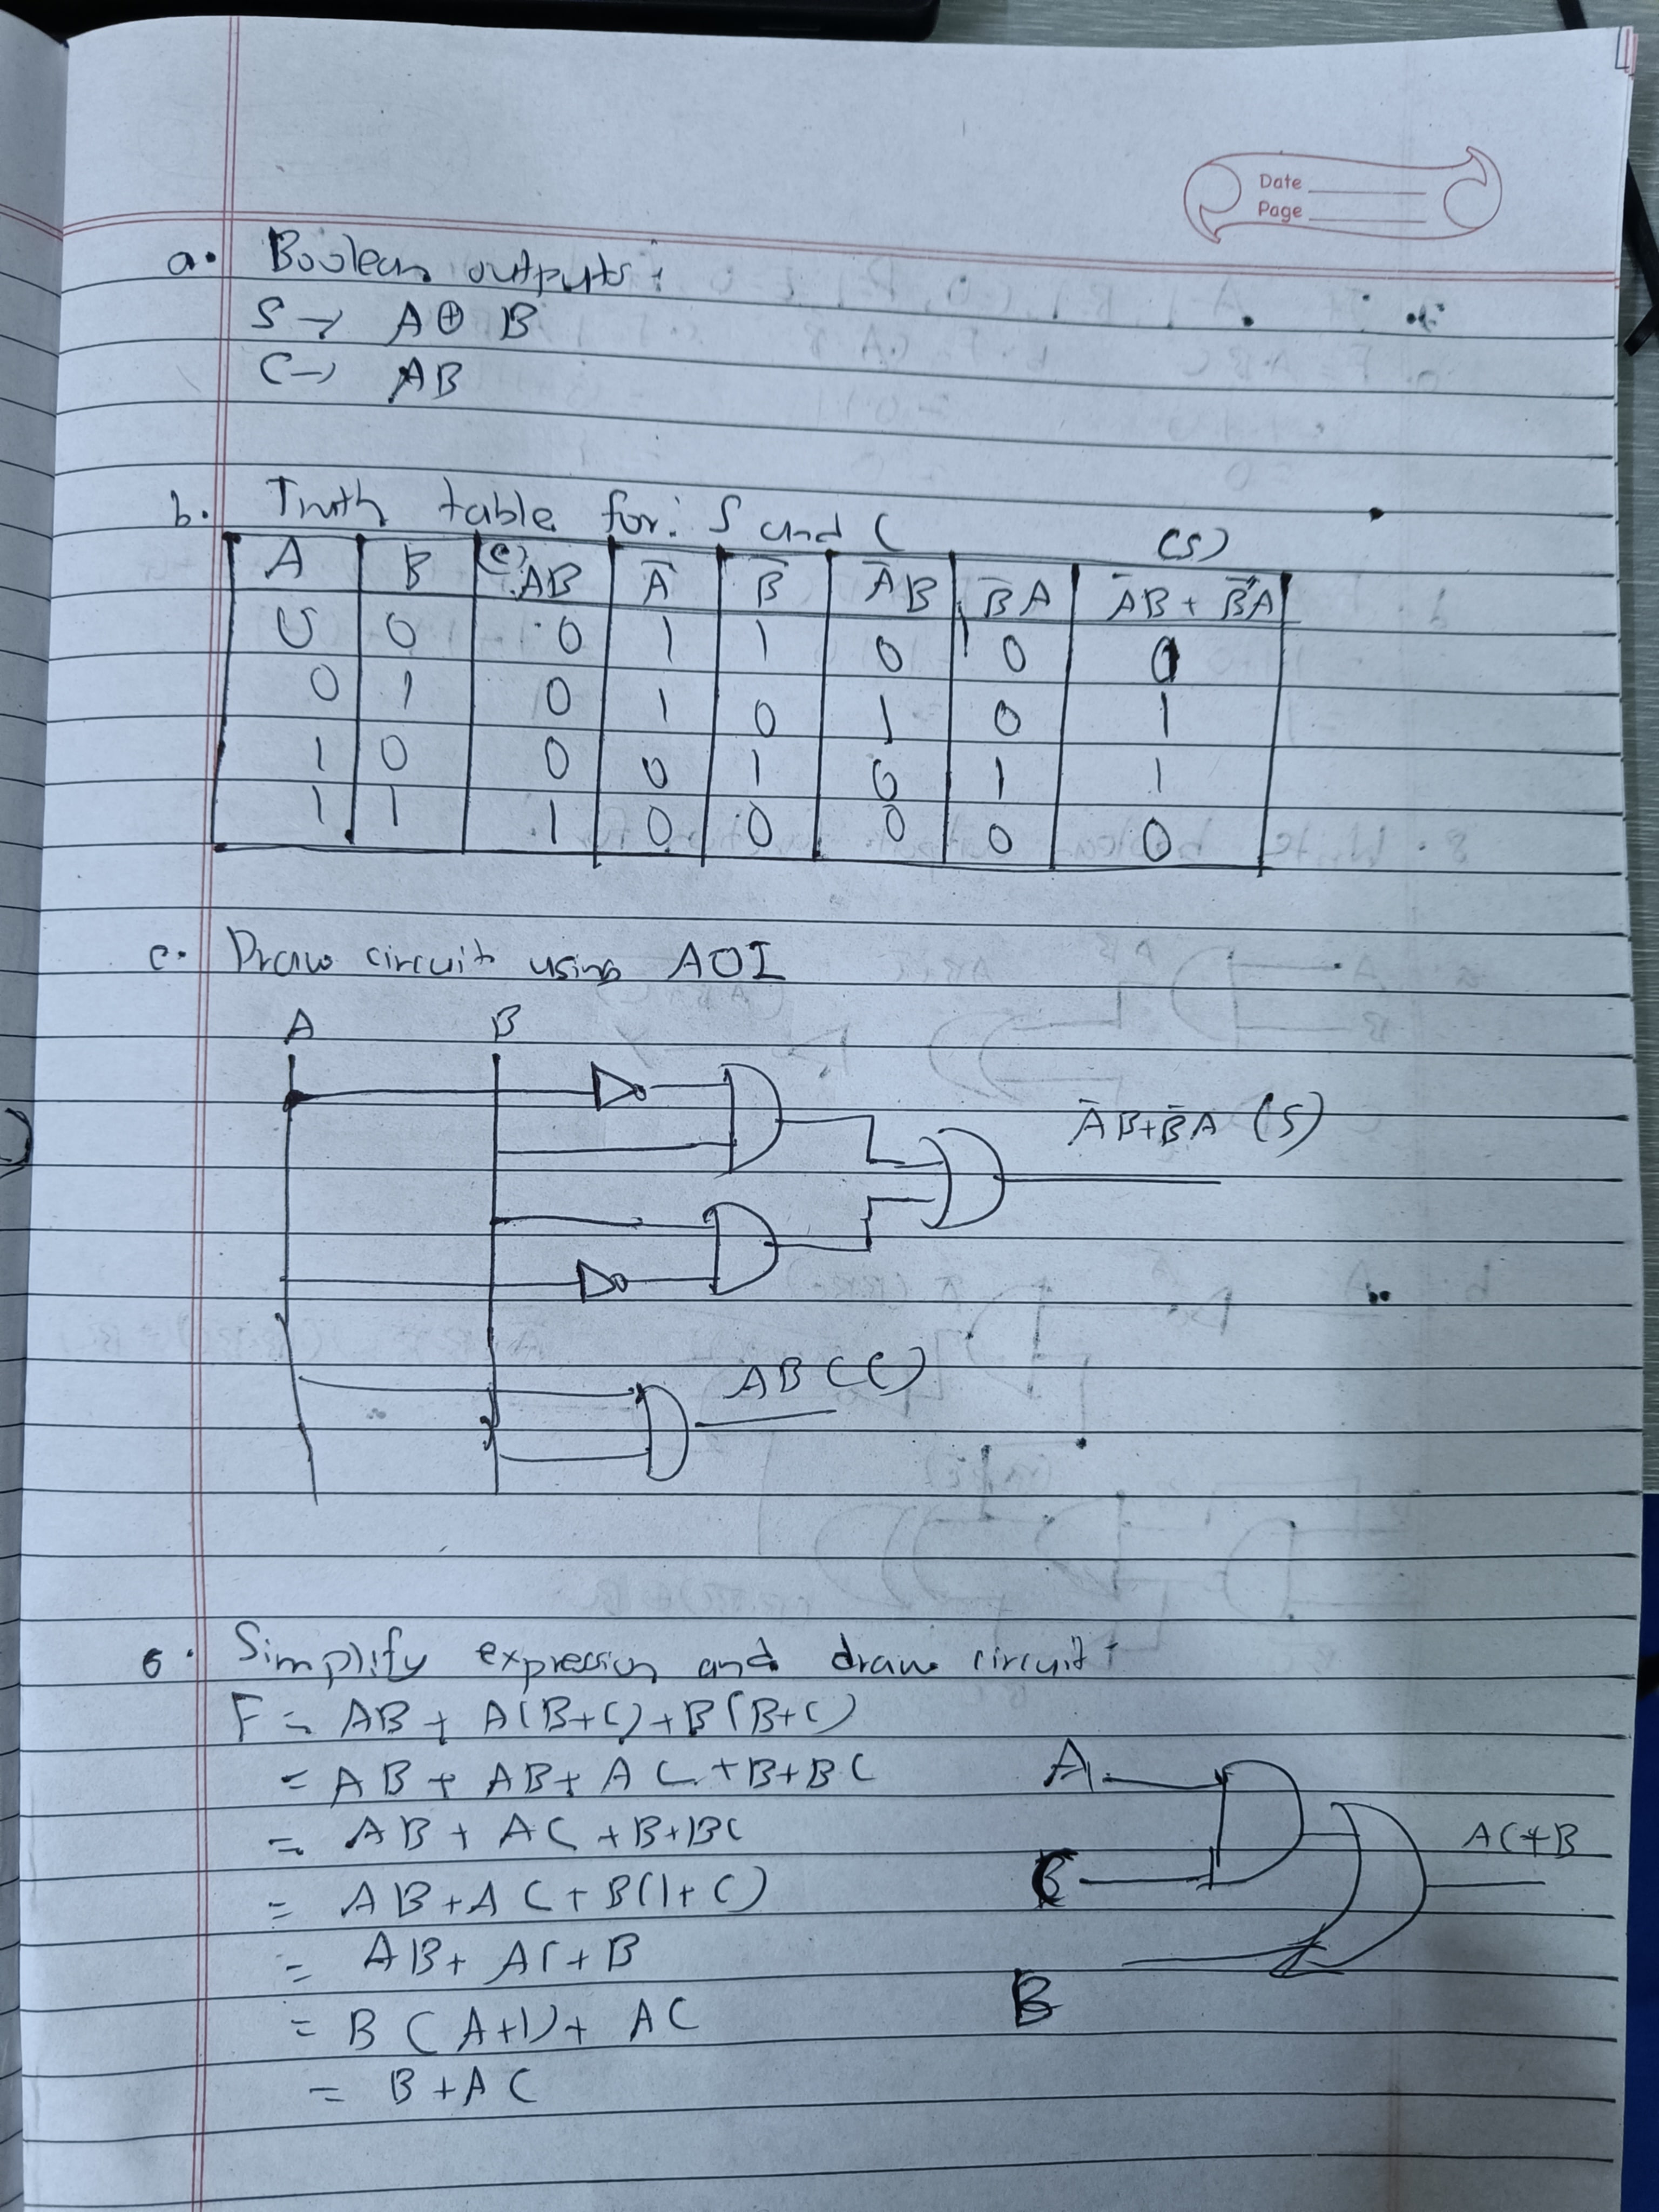 Date
Page
a. Boolean outputs:
S → A ⊕ B
C → AB
b. Truth table for: S and C
(S)
A B (C) AB A̅ B̅ A̅B B̅A A̅B + B̅A
0 0 0 1 1 0 0 0
0 1 0 1 0 1 0 1
1 0 0 0 1 0 1 1
1 1 1 0 0 0 0 0
c. Draw circuit using AOI
A B
A̅B+B̅A (S)
AB (C)
6. Simplify expression and draw circuit:
F = AB + A(B+C) + B(B+C)
= AB + AB + AC + B + BC
= AB + AC + B + BC
= AB + AC + B(1+C)
= AB + AC + B
= B(A+1) + AC
= B + AC
A
C
B
AC+B